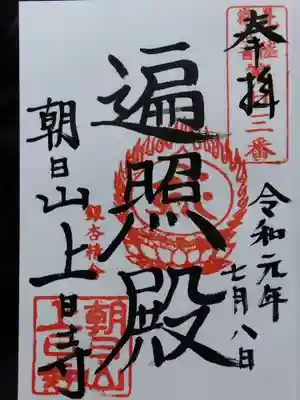 奉拝
令和元年
七月八日
遍照殿
朝日山上日寺
銀杏精舎
朝日山
上日寺